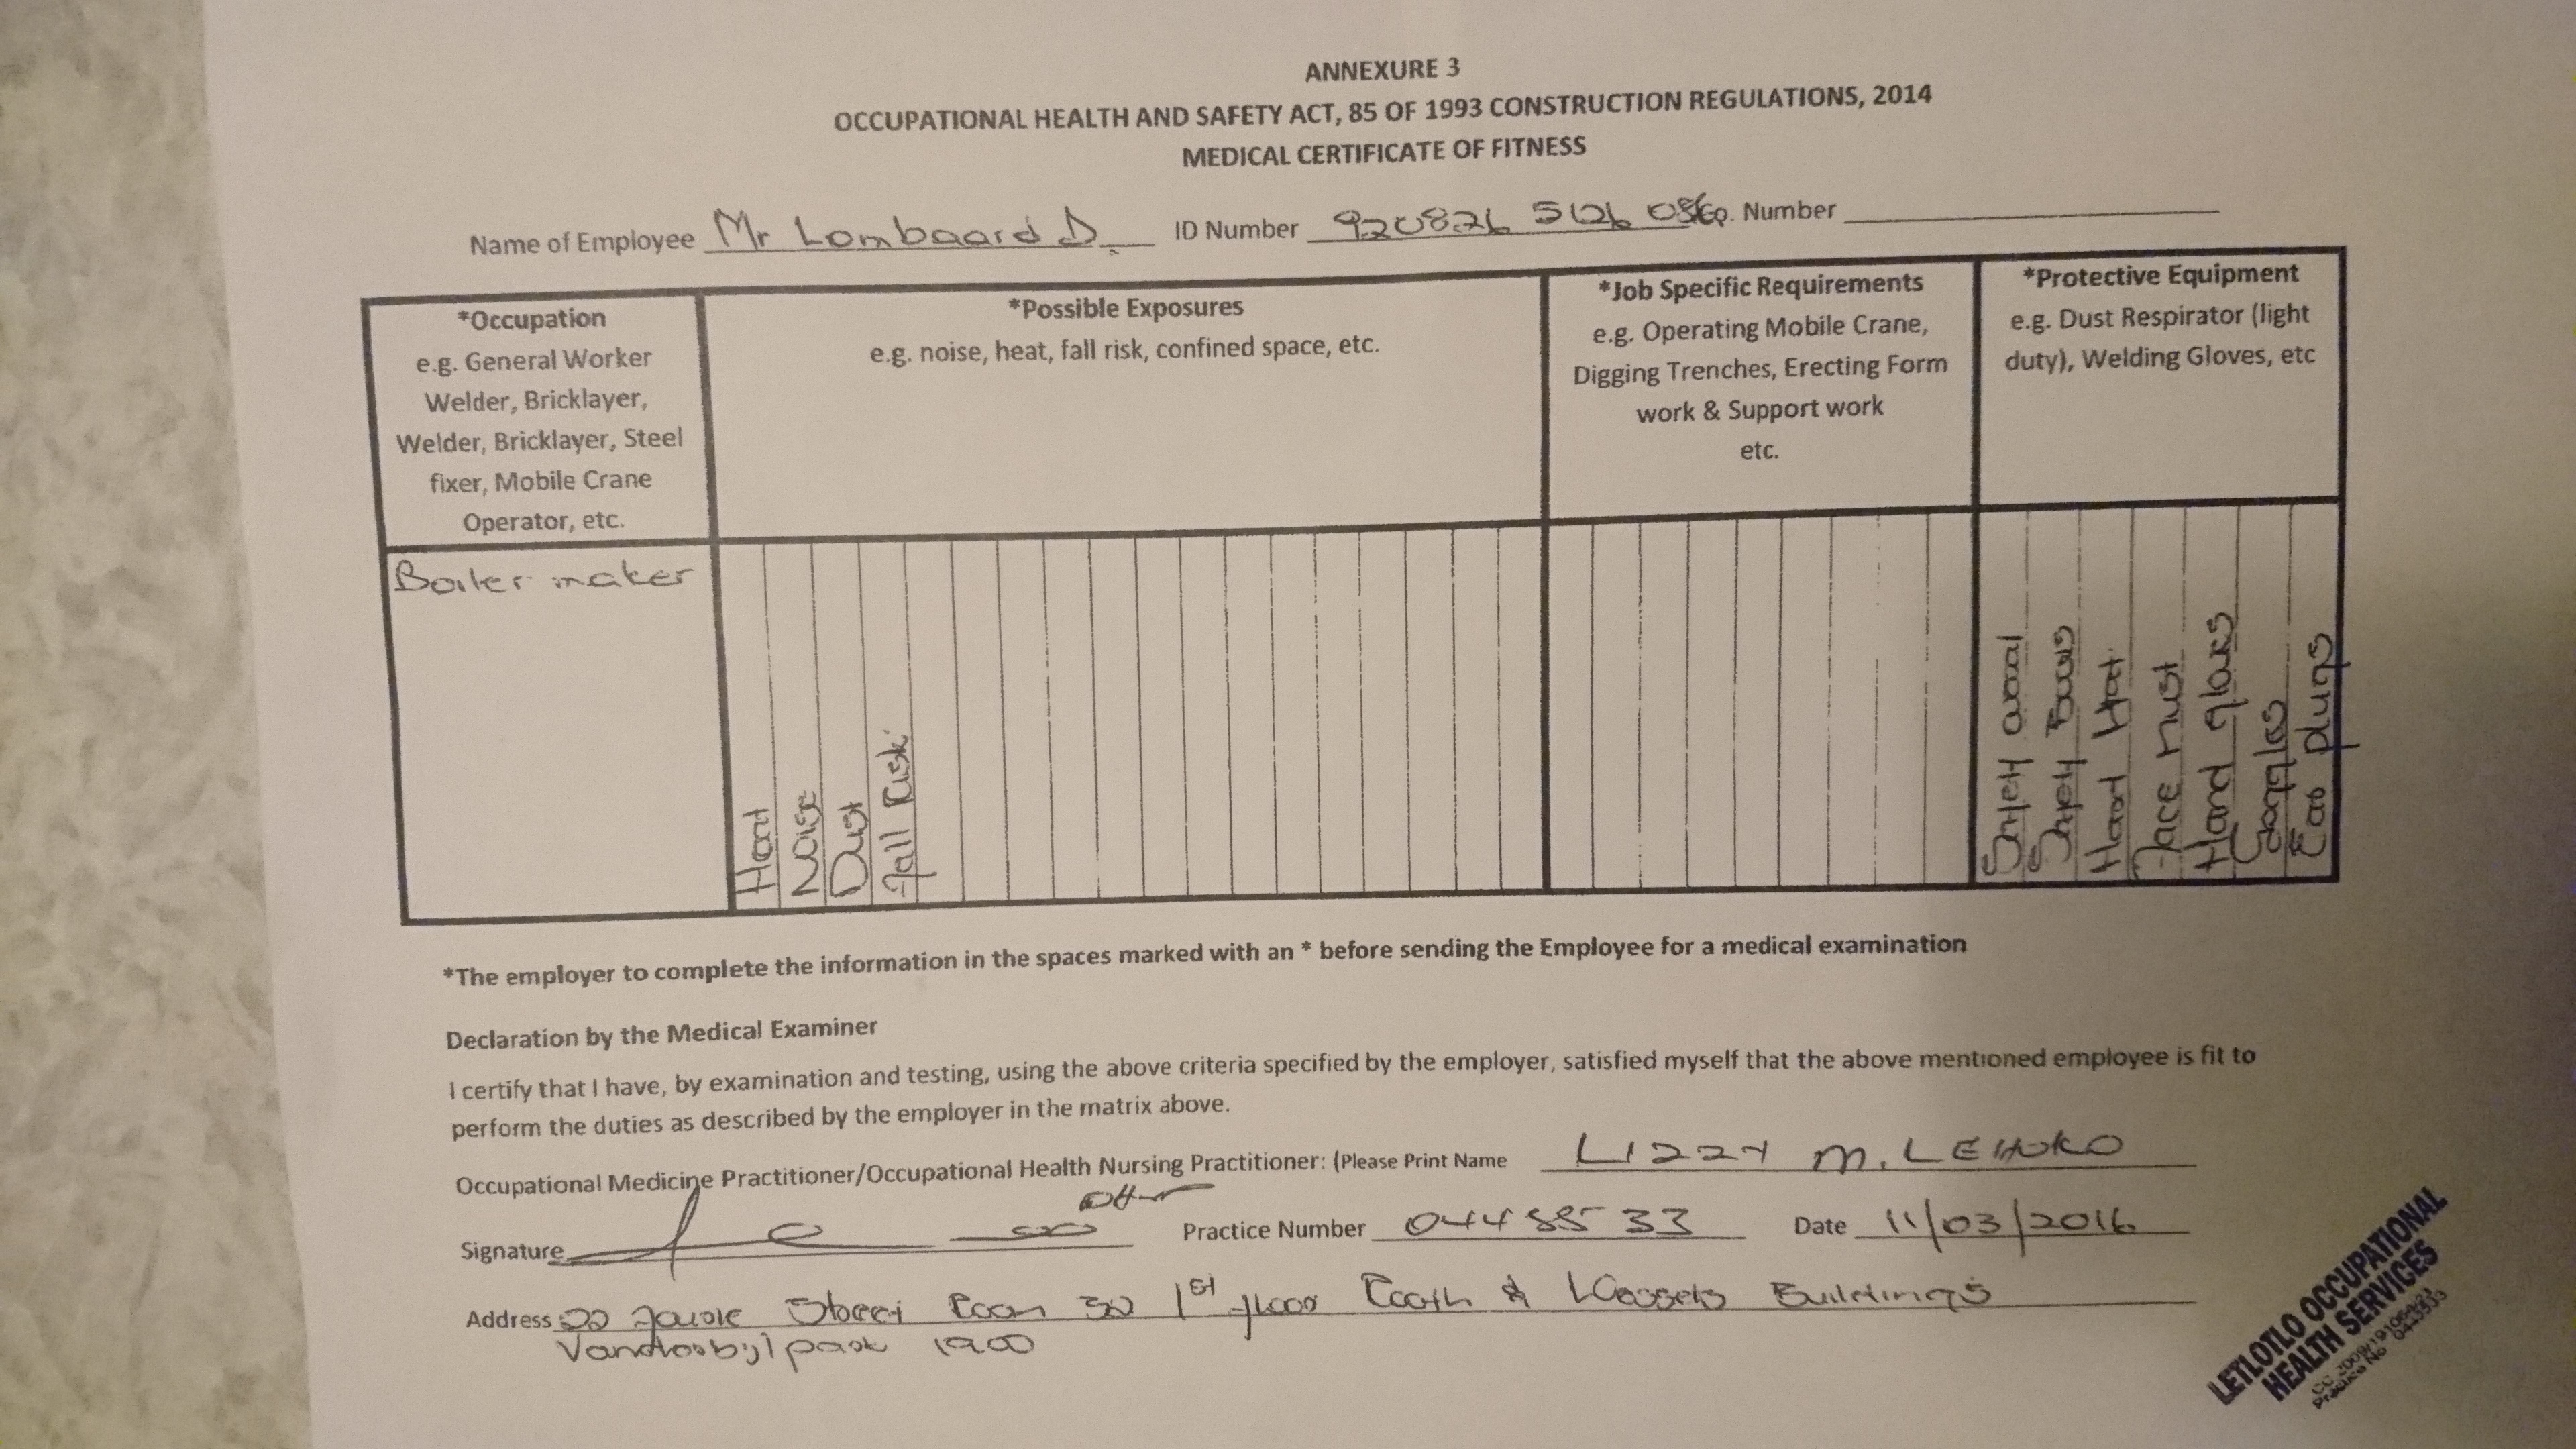 ANNEXURE 3
OCCUPATIONAL HEALTH AND SAFETY ACT, 85 OF 1993 CONSTRUCTION REGULATIONS, 2014
MEDICAL CERTIFICATE OF FITNESS
Name of Employee Mr Lombaard D. ID Number 920826 5126 086 Co. Number
*Occupation
e.g. General Worker
Welder, Bricklayer,
Welder, Bricklayer, Steel
fixer, Mobile Crane
Operator, etc.
*Possible Exposures
e.g. noise, heat, fall risk, confined space, etc.
*Job Specific Requirements
e.g. Operating Mobile Crane,
Digging Trenches, Erecting Form
work & Support work
etc.
*Protective Equipment
e.g. Dust Respirator (light
duty), Welding Gloves, etc
Boiler maker
Heat
Noise
Dust
Fall Risk
Hard Hat
Face
Hand gloves
Ear plugs
*The employer to complete the information in the spaces marked with an * before sending the Employee for a medical examination
Declaration by the Medical Examiner
I certify that I have, by examination and testing, using the above criteria specified by the employer, satisfied myself that the above mentioned employee is fit to
perform the duties as described by the employer in the matrix above.
Occupational Medicine Practitioner/Occupational Health Nursing Practitioner: (Please Print Name LIZZY M. LEHOKO
Signature Practice Number Date 11/03/2016
Address Street Room 30 1st floor & Buildings
Vanderbijlpark 1900
LETLOTLO OCCUPATIONAL
HEALTH SERVICES
Practice No